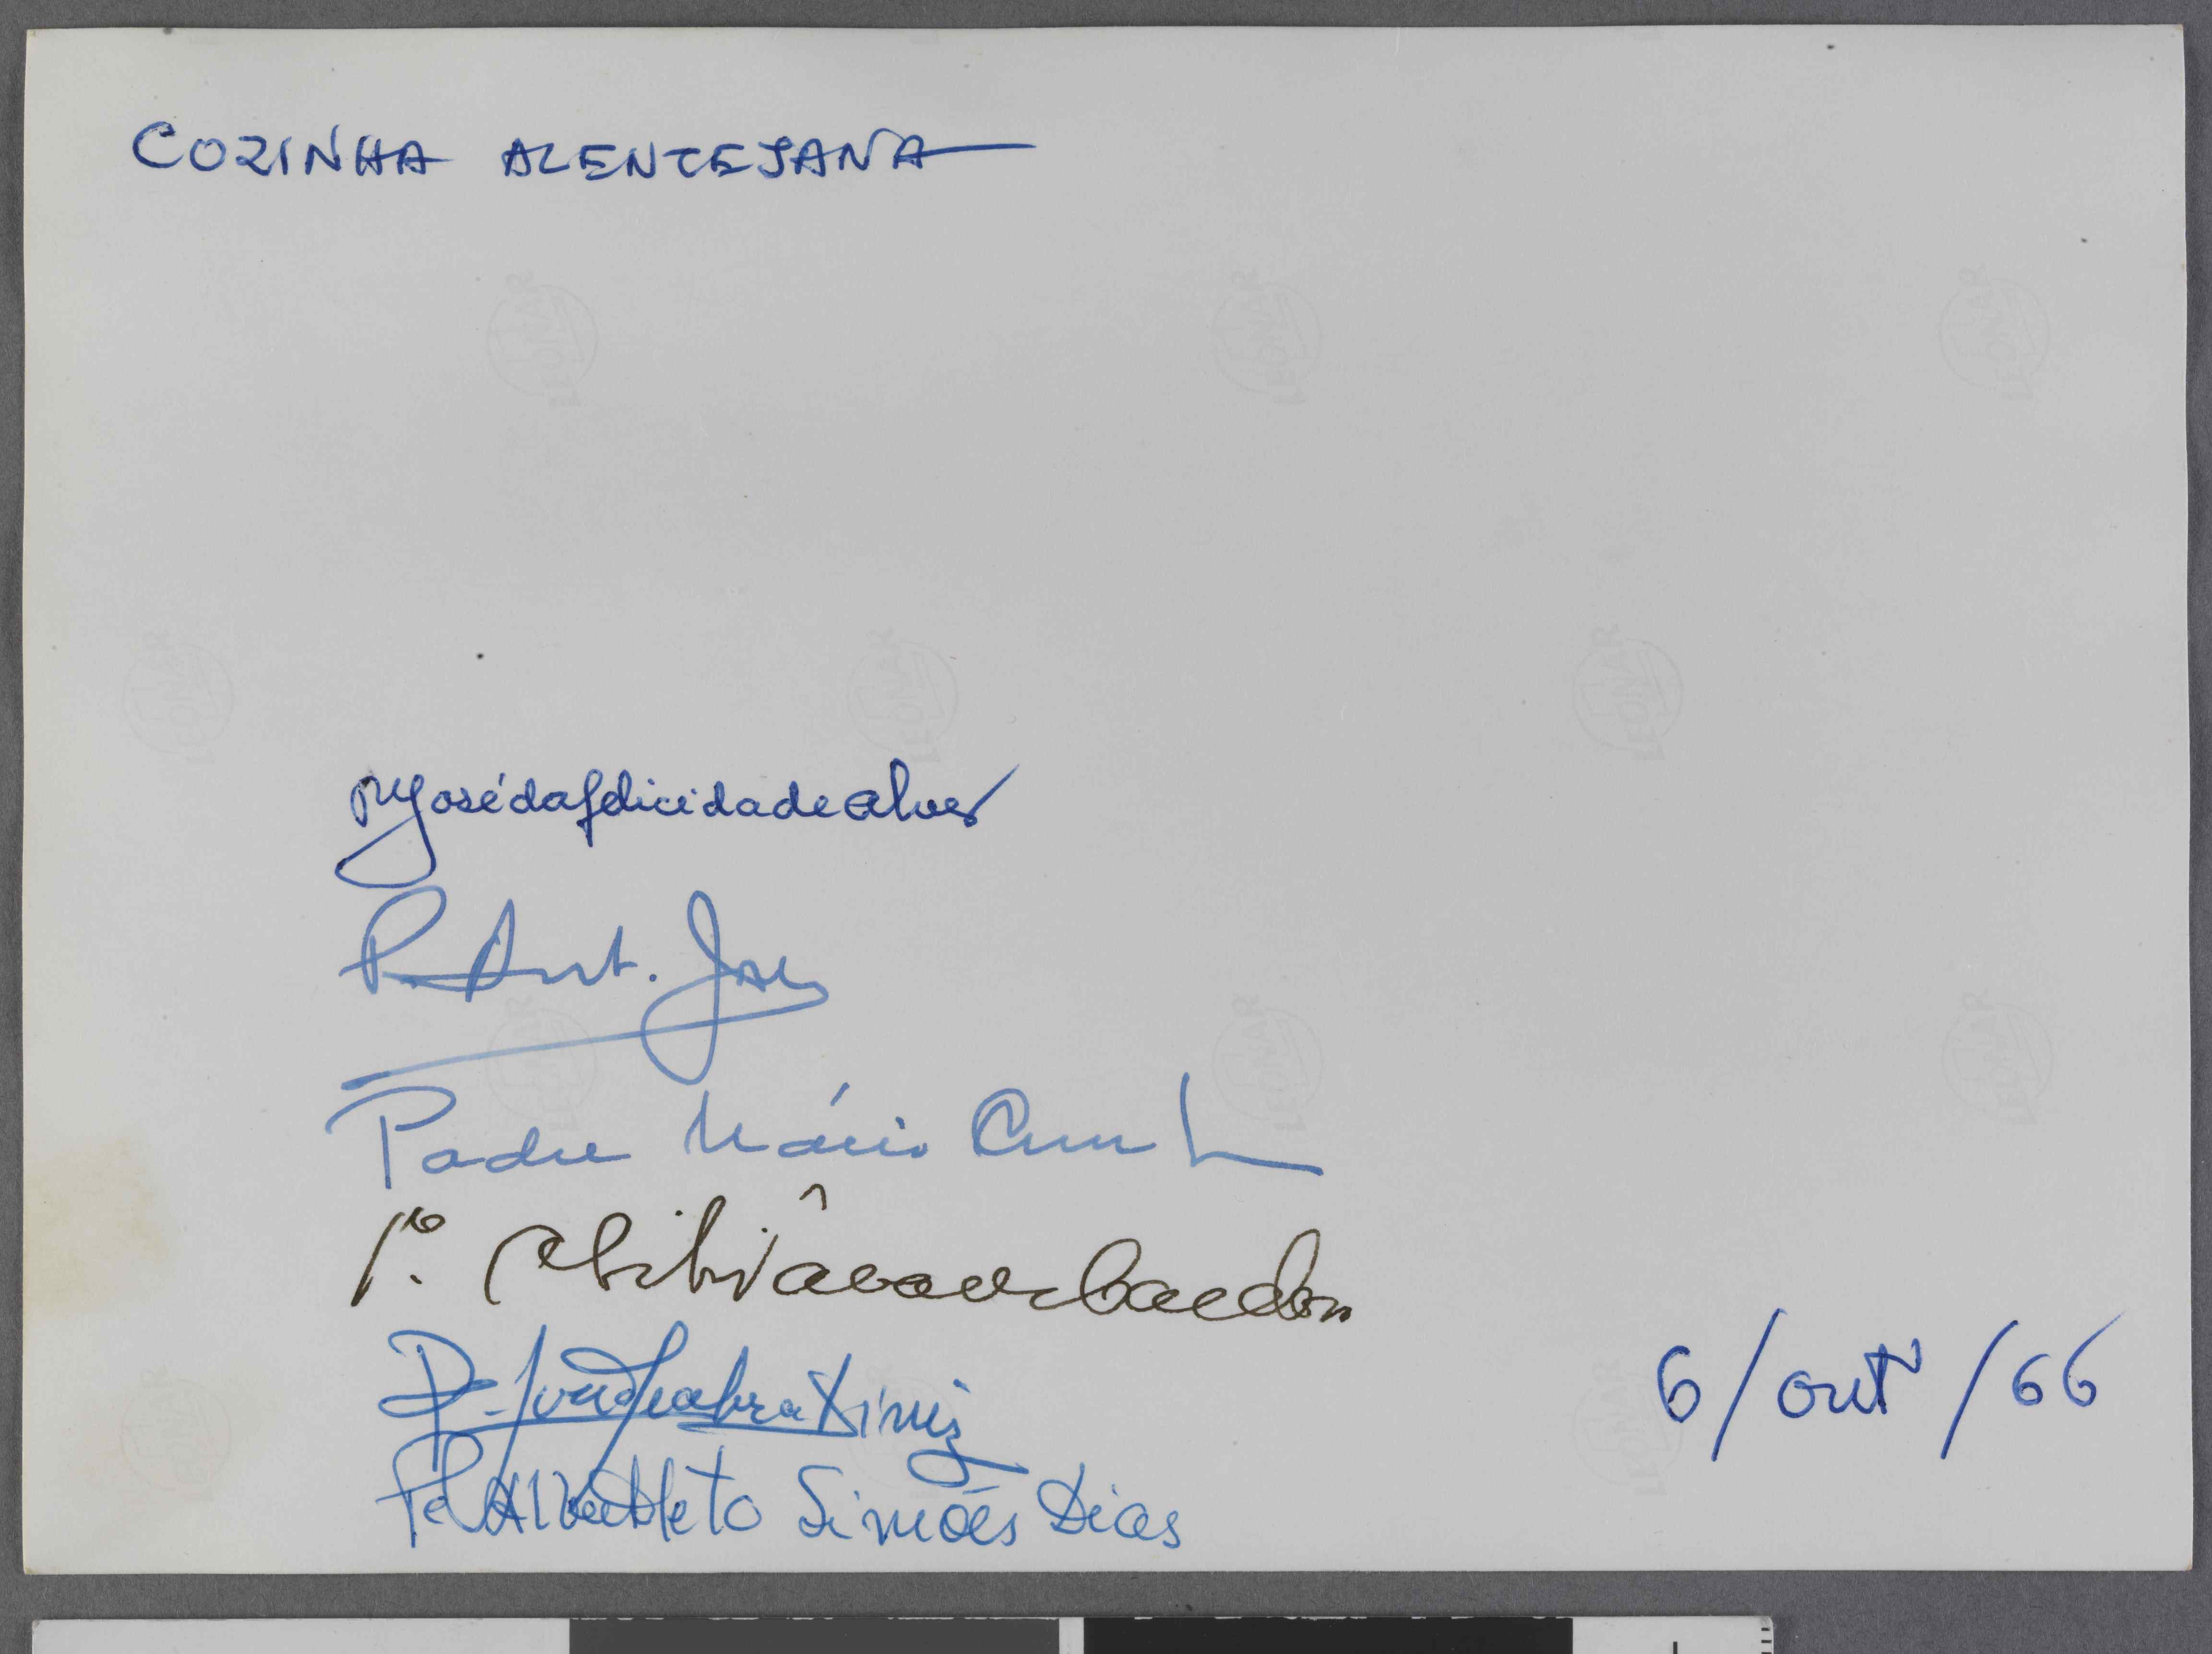 COZINHA ALENTEJANA
Pe José da felicidade alves
P. Ant. Jor
Padre Mário Cunh
Pe.
P. Seabra Diniz
Pe Alberto Simões Dias
6/out/66